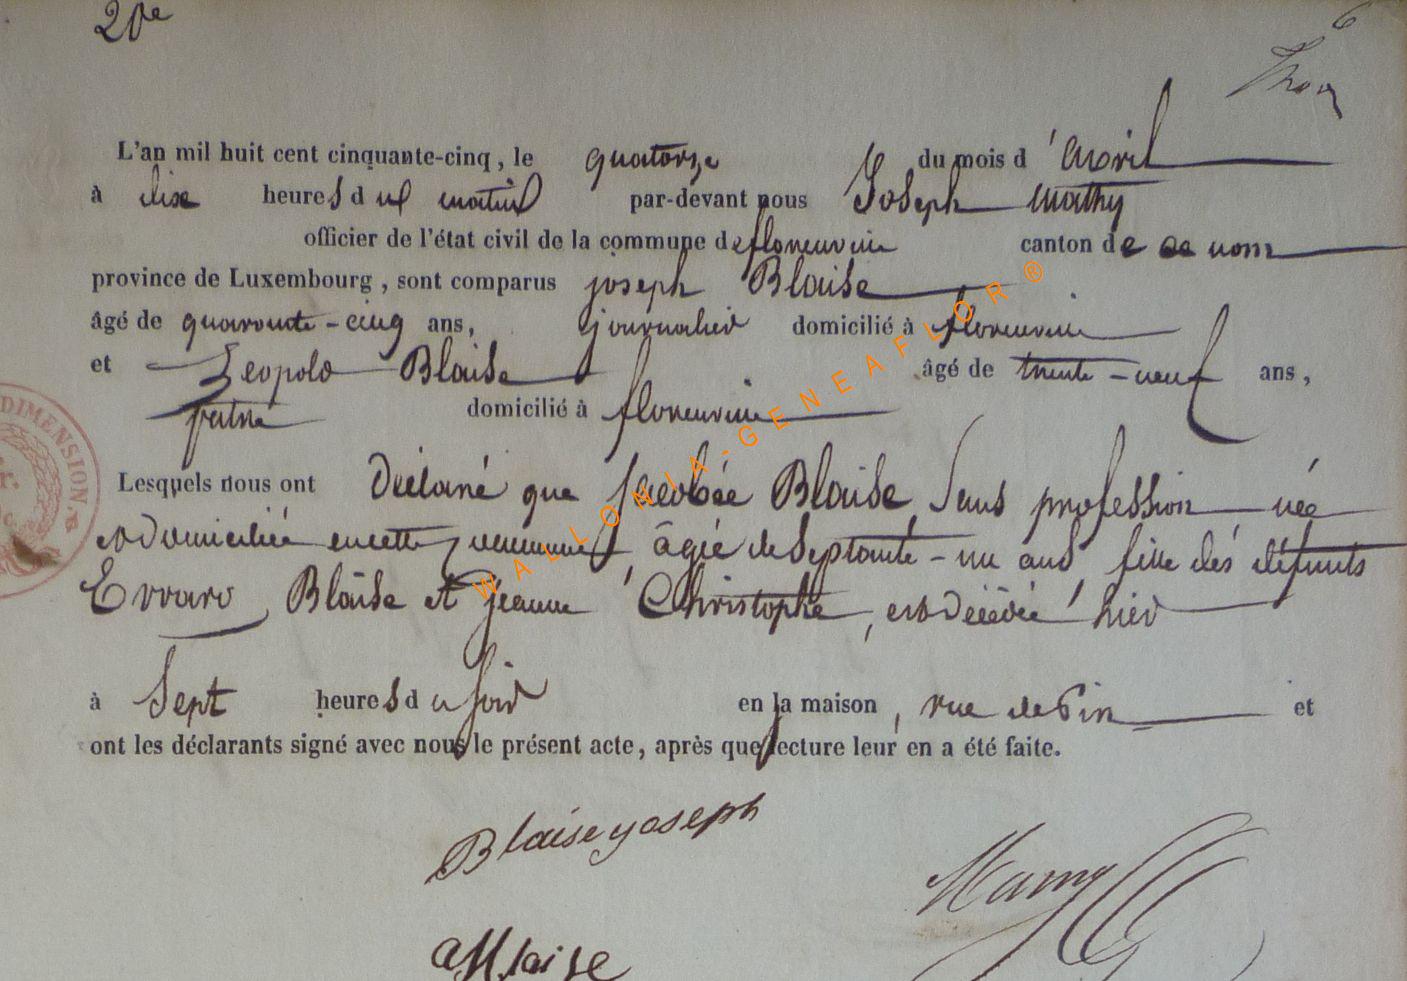 20e
6
L'an mil huit cent cinquante-cinq, le quatorze du mois d'avril
à dix heures du matin par-devant nous Joseph Mathy
officier de l'état civil de la commune de florenville canton de ce nom
province de Luxembourg, sont comparus joseph Blaise
âgé de quarante-cinq ans, journalier domicilié à florenville
et Léopold Blaise âgé de trente-neuf ans,
domicilié à florenville
Lesquels nous ont Déclaré que Blaise, Sans profession née
et domiciliée en cette commune, âgée de Septante-un ans, fille des défunts
Evrard Blaise et jeanne Christophe, est décédée hier
à Sept heures du soir en la maison, rue de et
ont les déclarants signé avec nous le présent acte, après que lecture leur en a été faite.
Blaise yoseph
DIMENSION
WALLONIA-GENEAFLOR®